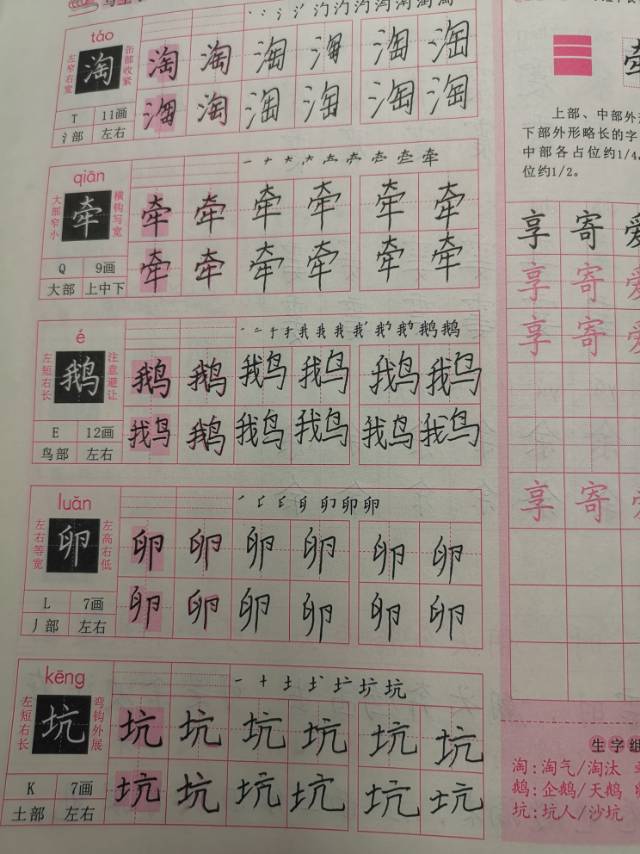 táo
左窄右宽
淘
缶部收紧
T 11画
氵部 左右
淘 淘 淘 淘 淘 淘
淘 淘 淘 淘 淘 淘
qiān
大部窄小
牵
横钩写宽
Q 9画
大部 上中下
牵 牵 牵 牵 牵 牵
牵 牵 牵 牵 牵 牵
é
左短右长
鹅
注意避让
E 12画
鸟部 左右
鹅 鹅 鹅 鹅 鹅 鹅
鹅 鹅 鹅 鹅 鹅 鹅
luǎn
左右等宽
卵
左高右低
L 7画
丿部 左右
卵 卵 卵 卵 卵 卵
卵 卵 卵 卵 卵 卵
kēng
左短右长
坑
弯钩外展
K 7画
土部 左右
坑 坑 坑 坑 坑 坑
坑 坑 坑 坑 坑 坑
上部、中部外
下部外形略长的字
中部各占位约1/4
位约1/2。
享 寄 爱
享 寄 爱
享 寄 爱
享 寄 爱
生字组
淘:淘气/淘汰
鹅:企鹅/天鹅
坑:坑人/沙坑